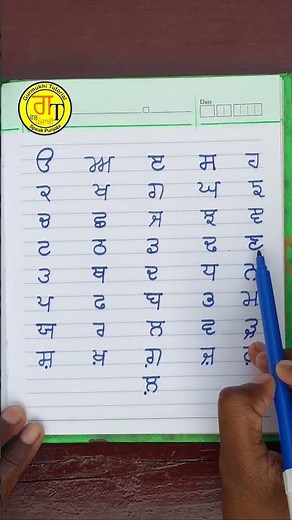 Gurmukhi Tutorial
ਗ T
Speak Punjabi
Date
ੳ ਅ ੲ ਸ ਹ
ਕ ਖ ਗ ਘ ਙ
ਚ ਛ ਜ ਝ ਞ
ਟ ਠ ਡ ਢ ਣ
ਤ ਥ ਦ ਧ ਨ
ਪ ਫ ਬ ਭ ਮ
ਯ ਰ ਲ ਵ ੜ
ਸ਼ ਖ਼ ਗ਼ ਜ਼ ਫ਼
ਲ਼